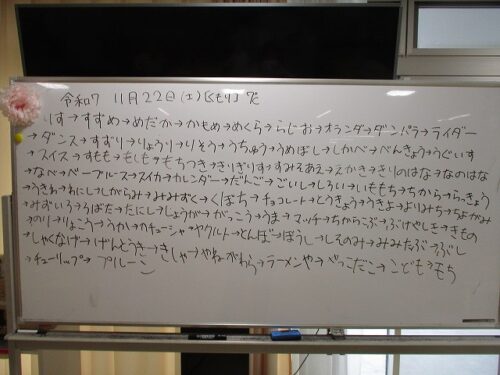 令和7 11月22日(土)[くもり] 7℃
りす→すずめ→めだか→かもめ→めくら→らじお→オランダ→ダンパラ→ライダー
→ダンス→すずり→りょうり→りそう→うちゅう→うめぼし→しかべ→べんきょう→うぐいす
→スイス→すもも→もしも→もちつき→きりぎりす→すみそあえ→えかき→きりのはな→なのはな
なべ→ベーブルース→スイカ→カレンダー→だんご→ごいし→しろい→いももち→ちから→らっきょう
うきわ→わにし→しがらみ→みみずく→くぼち→チョコレート→とうきょう→うきよ→よりみち→ちよがみ
みずいろ→ろばた→たにし→しょうが→がっこう→うま→マッチ→ちからこぶ→ぶけやしき→きもの
→のり→りょこう→うか→カチューシャ→ヤクルト→とんぼ→ぼうし→しそのみ→みみたぶ→ぶし
→しゃくなげ→げんとうき→きしゃ→やねがわら→ラーメンや→やつこだこ→こども→もち
→チューリップ→プルーン